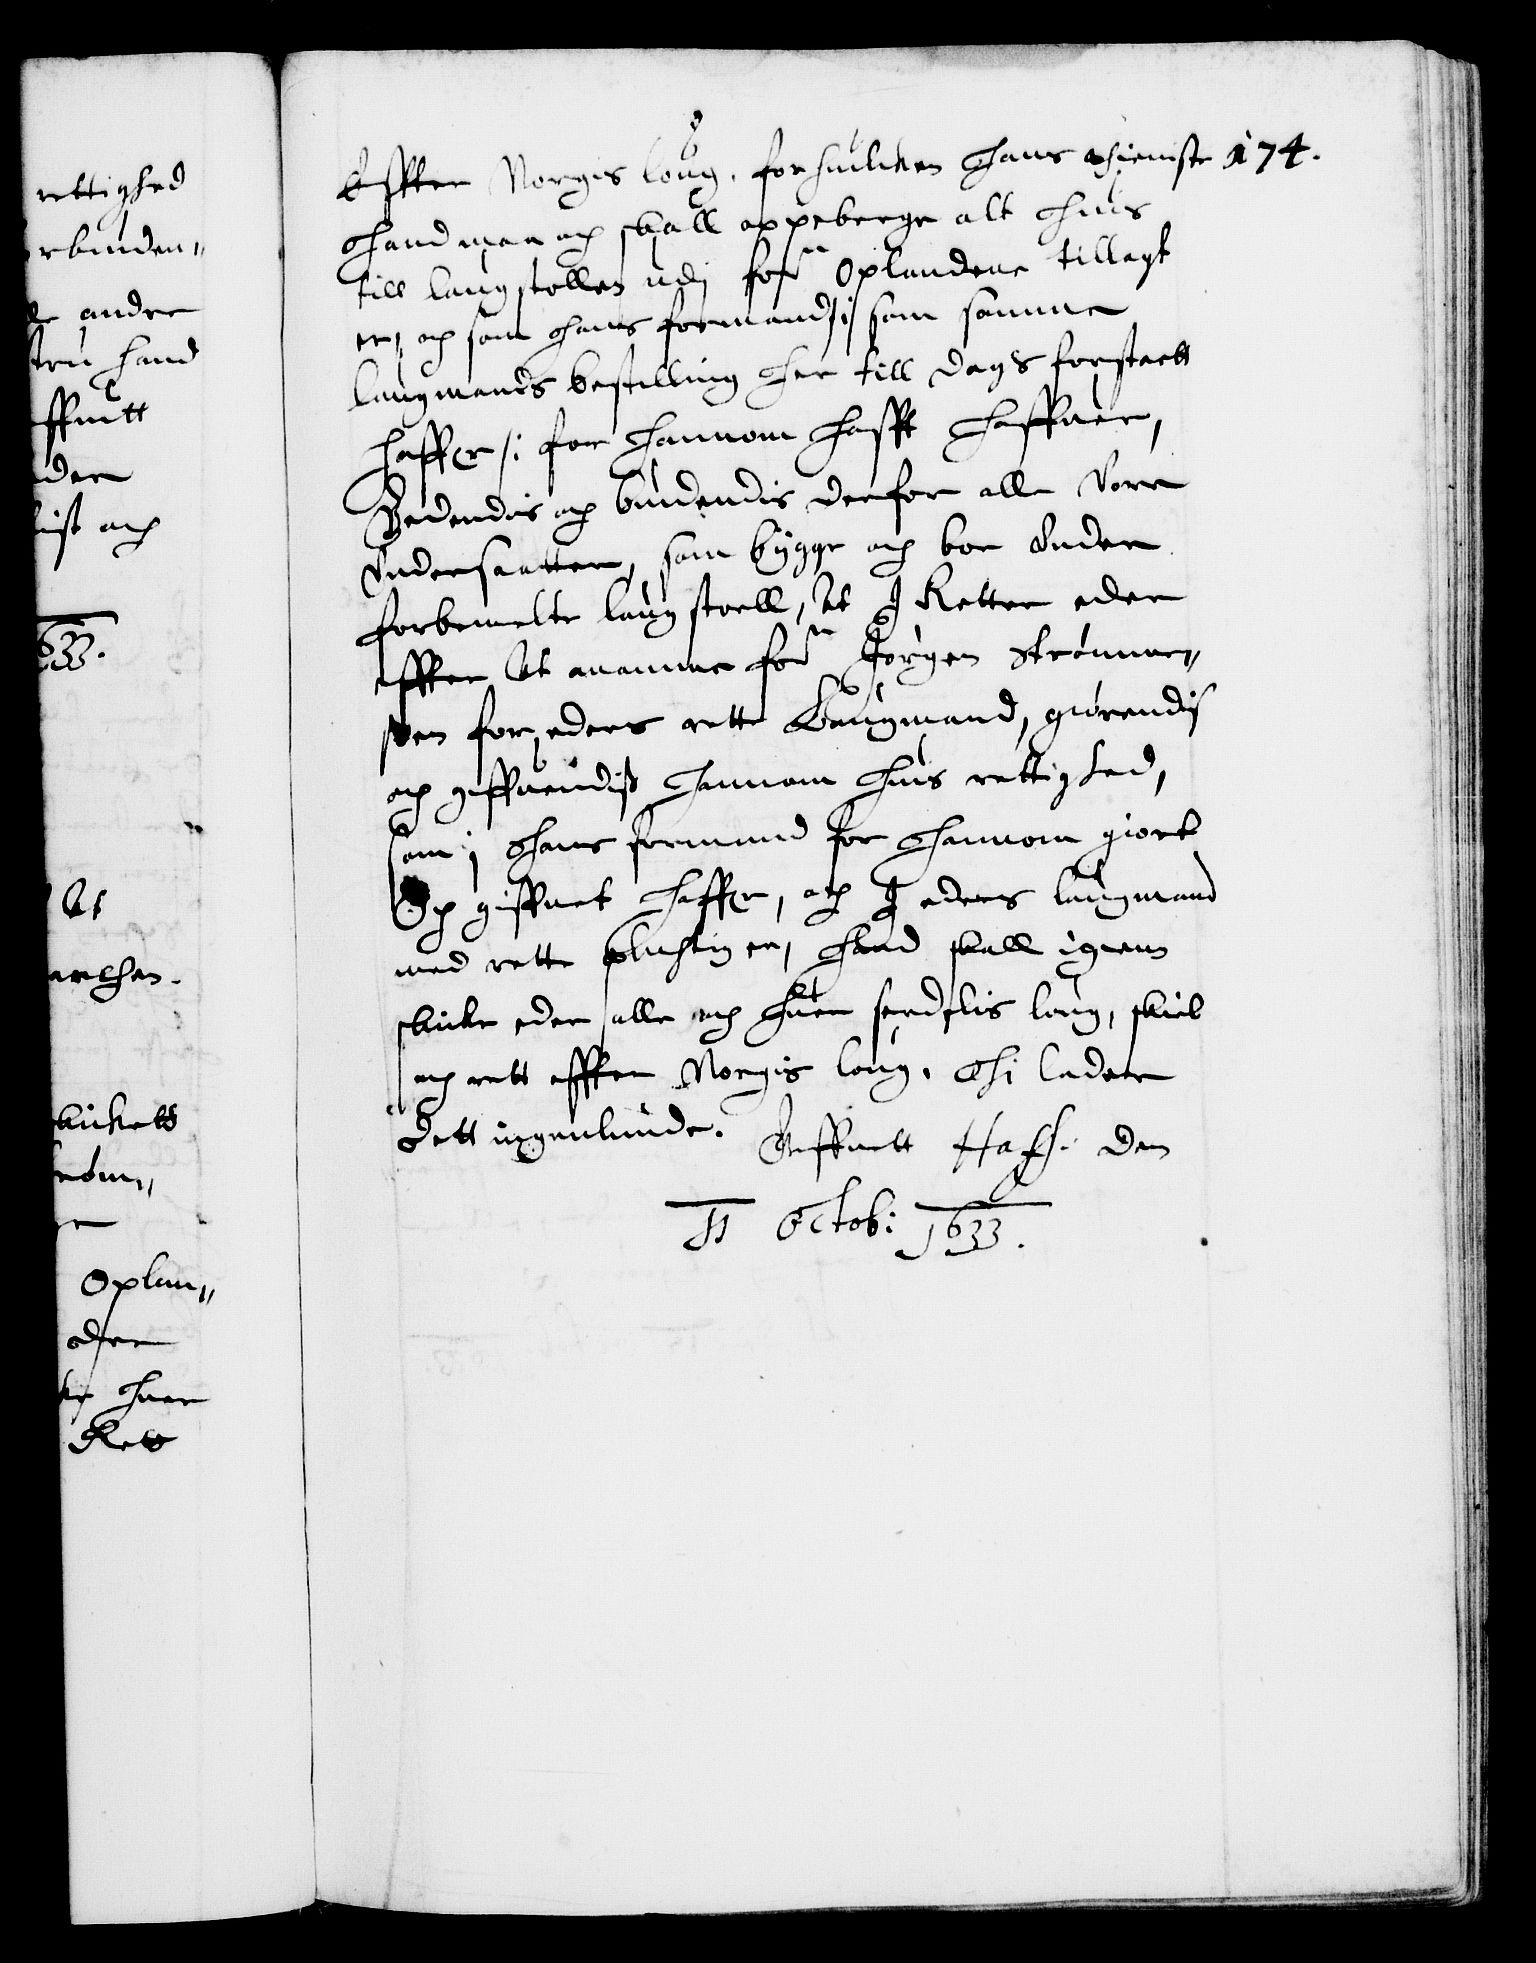 rettighed
rbinden„
andre
hand
ffuitt
der
och
633.
At
Oplan„
huer
Rett
174.
Effter Norgis loug, for huilcken hans thieniste
hand maa och skall oppeberge alt huis
till laugstollen udj forn Oplandene tillagt
er, och som hans formand /: som samme
laugmands bestilling her till dags forstaett
haffer :/ for hannom hafft haffuer,
Bedendis och biudendis derfor alle Vore
Undersaatter, som bygge och boe Under
forbemelte laug stoell, At I Retter eder
effter At anamme forn Jørgen Strømme„
sen for eders rette Laugmand, giørendis
och giffuendiß hannom huis rettighed,
som i hans formand for hannom giort
Och giffuet haffer, och I eders laugmand
med rette plichtig er, Hand skall igienn
skicke eder alle och huer serdelis loug, skiel
och rett effter Norgis loug. Thi lader
dett ingenlunde. Giffuett Haffn: den
11 Octob: 1633.